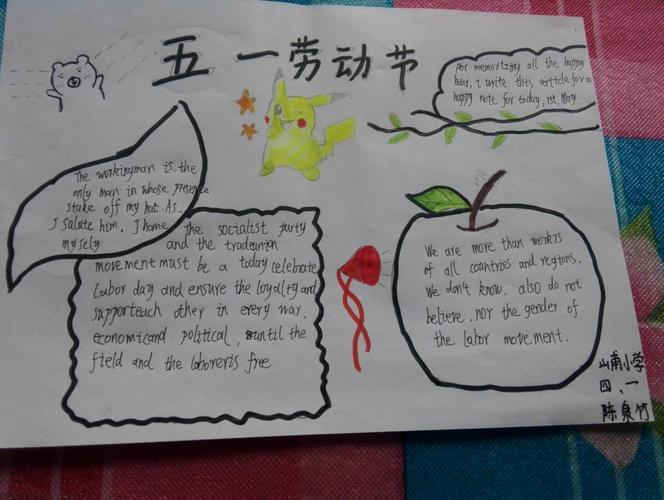 五一劳动节
for memortzing all the happy
hour, i write this article for a
happy note for today, 1st, May.
The workingman is the
only man in whose presence
I take off my hat. As
I salute him, I home
my sely
the socialist party
and the tradeunion
movement must be a today celebrate
Labor day and ensure the loyalty and
supporteach other in every war.
economicand political, until the
field and the laboreris free
We are more than workers
of all countries and regions.
We don't know, also do not
believe, nor the gender of
the labor movement.
山甫小学
四、一
陈泉竹